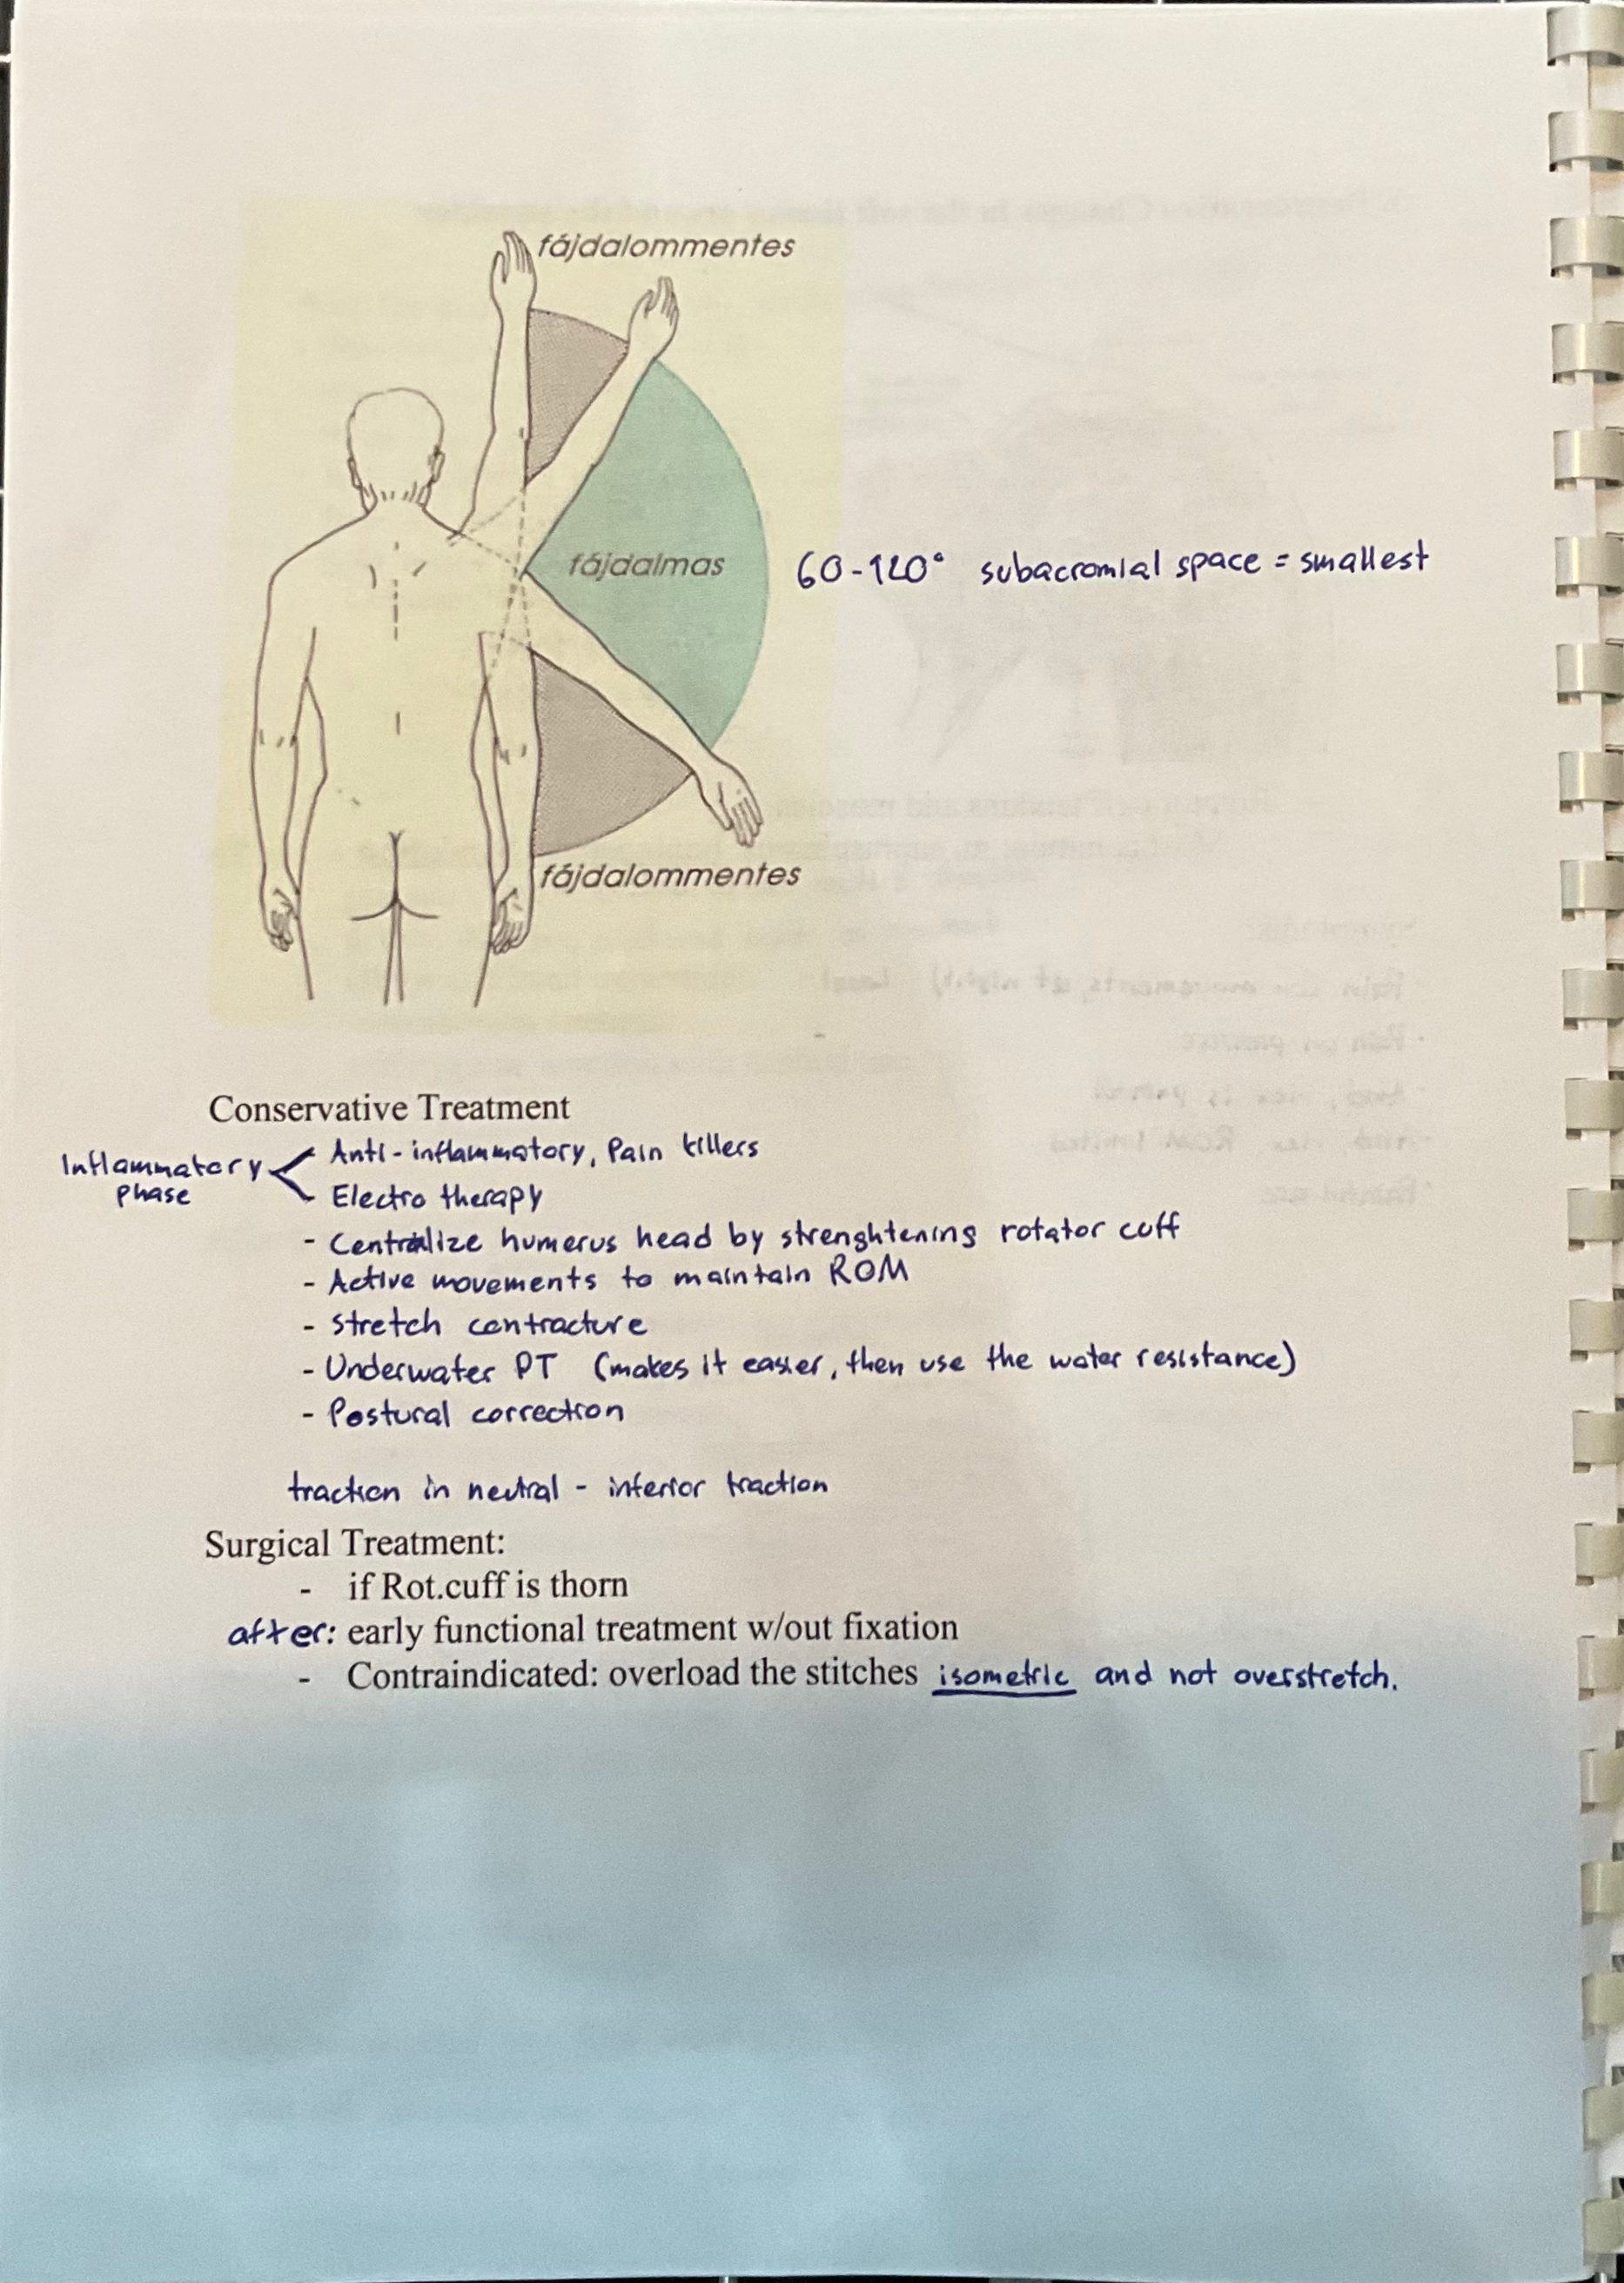 fájdalommentes
fájdalmas 60-120° subacromial space = smallest
fájdalommentes
Conservative Treatment
Inflammatory phase < Anti-inflammatory, Pain killers
Electro therapy
- Centralize humerus head by strenghtening rotator cuff
- Active movements to maintain ROM
- Stretch contracture
- Underwater PT (makes it easier, then use the water resistance)
- Postural correction
traction in neutral - inferior traction
Surgical Treatment:
- if Rot.cuff is thorn
after: early functional treatment w/out fixation
- Contraindicated: overload the stitches isometric and not overstretch.